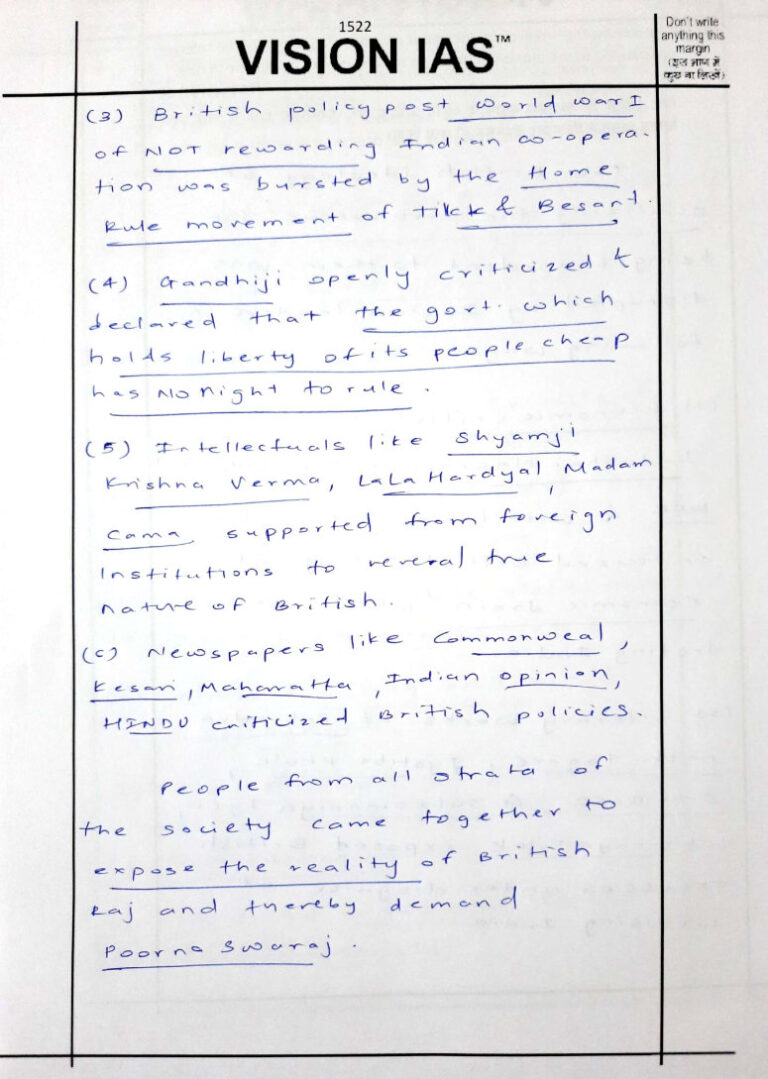 1522
VISION IAS™
Don't write
anything this
margin
(इस भाग में
कुछ ना लिखें)
(3) British policy post World War I
of NOT rewarding Indian co-opera-
tion was bursted by the Home
Rule movement of & Besant.
(4) Gandhiji openly criticized &
declared that the govt. which
holds liberty of its people cheap
has NO right to rule.
(5) Intellectuals like Shyamji
Krishna Verma, LaLa Hardyal, Madam
Cama supported from foreign
Institutions to reveal true
nature of British.
(c) Newspapers like Commonweal,
Kesari, Maharatta, Indian opinion,
HINDU criticized British policies.
People from all strata of
the society came together to
expose the reality of British
Raj and thereby demand
Poorna Swaraj.